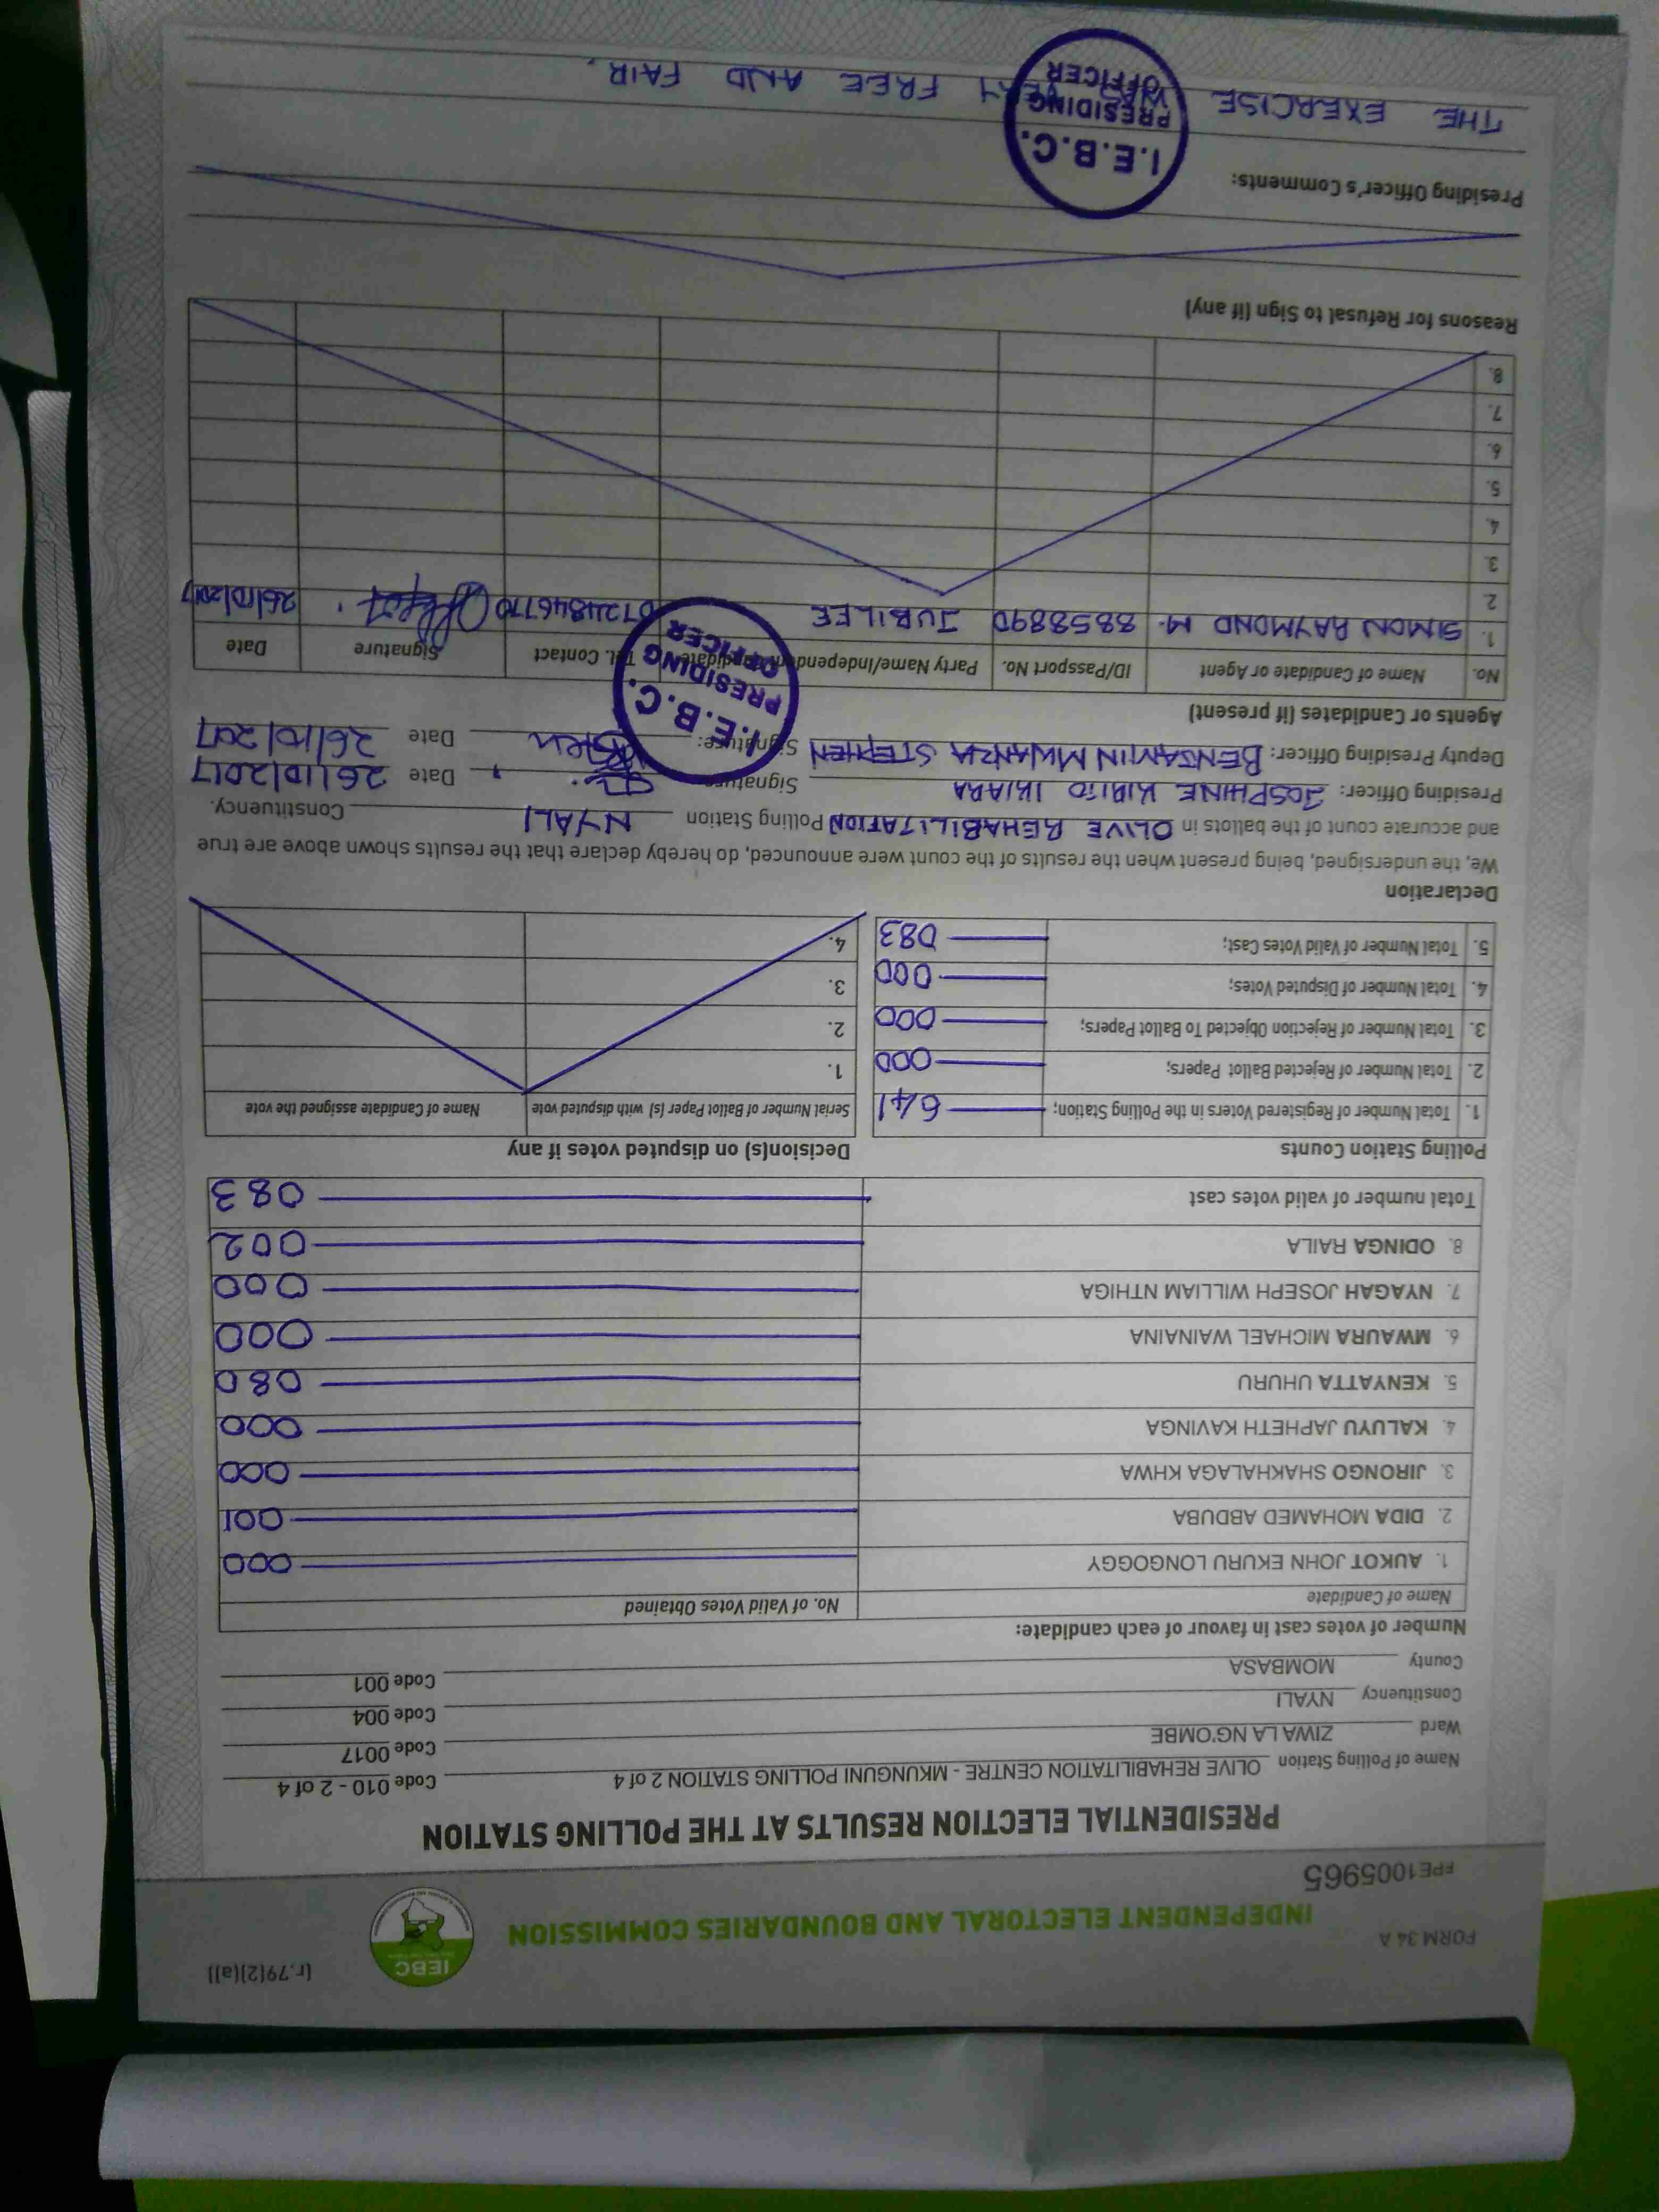 FORM 34 A
(r.79(2)(a))
INDEPENDENT ELECTORAL AND BOUNDARIES COMMISSION
IEBC
FPE1005965
PRESIDENTIAL ELECTION RESULTS AT THE POLLING STATION
Name of Polling Station OLIVE REHABILITATION CENTRE - MKUNGUNI POLLING STATION 2 of 4 Code 010 - 2 of 4
Ward ZIWA LA NG'OMBE Code 0017
Constituency NYALI Code 004
County MOMBASA Code 001
Number of votes cast in favour of each candidate:
Name of Candidate No. of Valid Votes Obtained
1. AUKOT JOHN EKURU LONGOGGY 000
2. DIDA MOHAMED ABDUBA 001
3. JIRONGO SHAKHALAGA KHWA 000
4. KALUYU JAPHETH KAVINGA 000
5. KENYATTA UHURU 080
6. MWAURA MICHAEL WAINAINA 000
7. NYAGAH JOSEPH WILLIAM NTHIGA 000
8. ODINGA RAILA 002
Total number of valid votes cast 083
Polling Station Counts
1. Total Number of Registered Voters in the Polling Station; 641
2. Total Number of Rejected Ballot Papers; 000
3. Total Number of Rejection Objected To Ballot Papers; 000
4. Total Number of Disputed Votes; 000
5. Total Number of Valid Votes Cast; 083
Decision(s) on disputed votes if any
Serial Number of Ballot Paper (s) with disputed vote Name of Candidate assigned the vote
1.
2.
3.
4.
Declaration
We, the undersigned, being present when the results of the count were announced, do hereby declare that the results shown above are true
and accurate count of the ballots in OLIVE REHABILITATION Polling Station NYALI Constituency.
Presiding Officer: JOSPHINE KIRITO IKIARA Signature Date 26/10/2017
Deputy Presiding Officer: BENJAMIN MWANZA STEPHEN Signature: Date 26/10/2017
I.E.B.C.
PRESIDING
OFFICER
Agents or Candidates (if present)
No. Name of Candidate or Agent ID/Passport No. Party Name/Independent Candidate Tel. Contact Signature Date
1. SIMON RAYMOND M. 8858890 JUBILEE 0724846770 26/10/2017
2
3.
4.
5.
6.
7.
8.
Reasons for Refusal to Sign (if any)
Presiding Officer's Comments:
THE EXERCISE WAS VERY FREE AND FAIR.
I.E.B.C.
PRESIDING
OFFICER